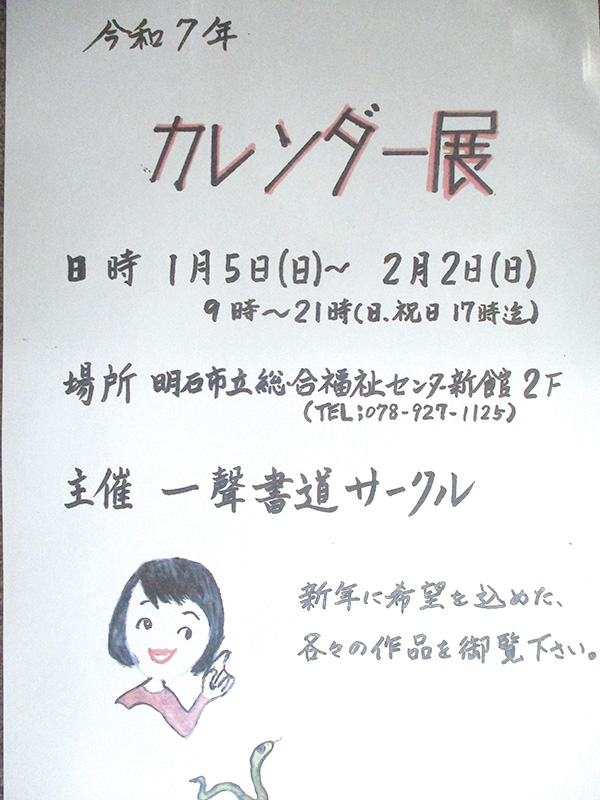 令和7年
カレンダー展
日時 1月5日(日)〜 2月2日(日)
9時〜21時(日、祝日17時迄)
場所 明石市立総合福祉センター新館2F
(TEL;078-927-1125)
主催 一聲書道サークル
新年に希望を込めた、
各々の作品を御覧下さい。